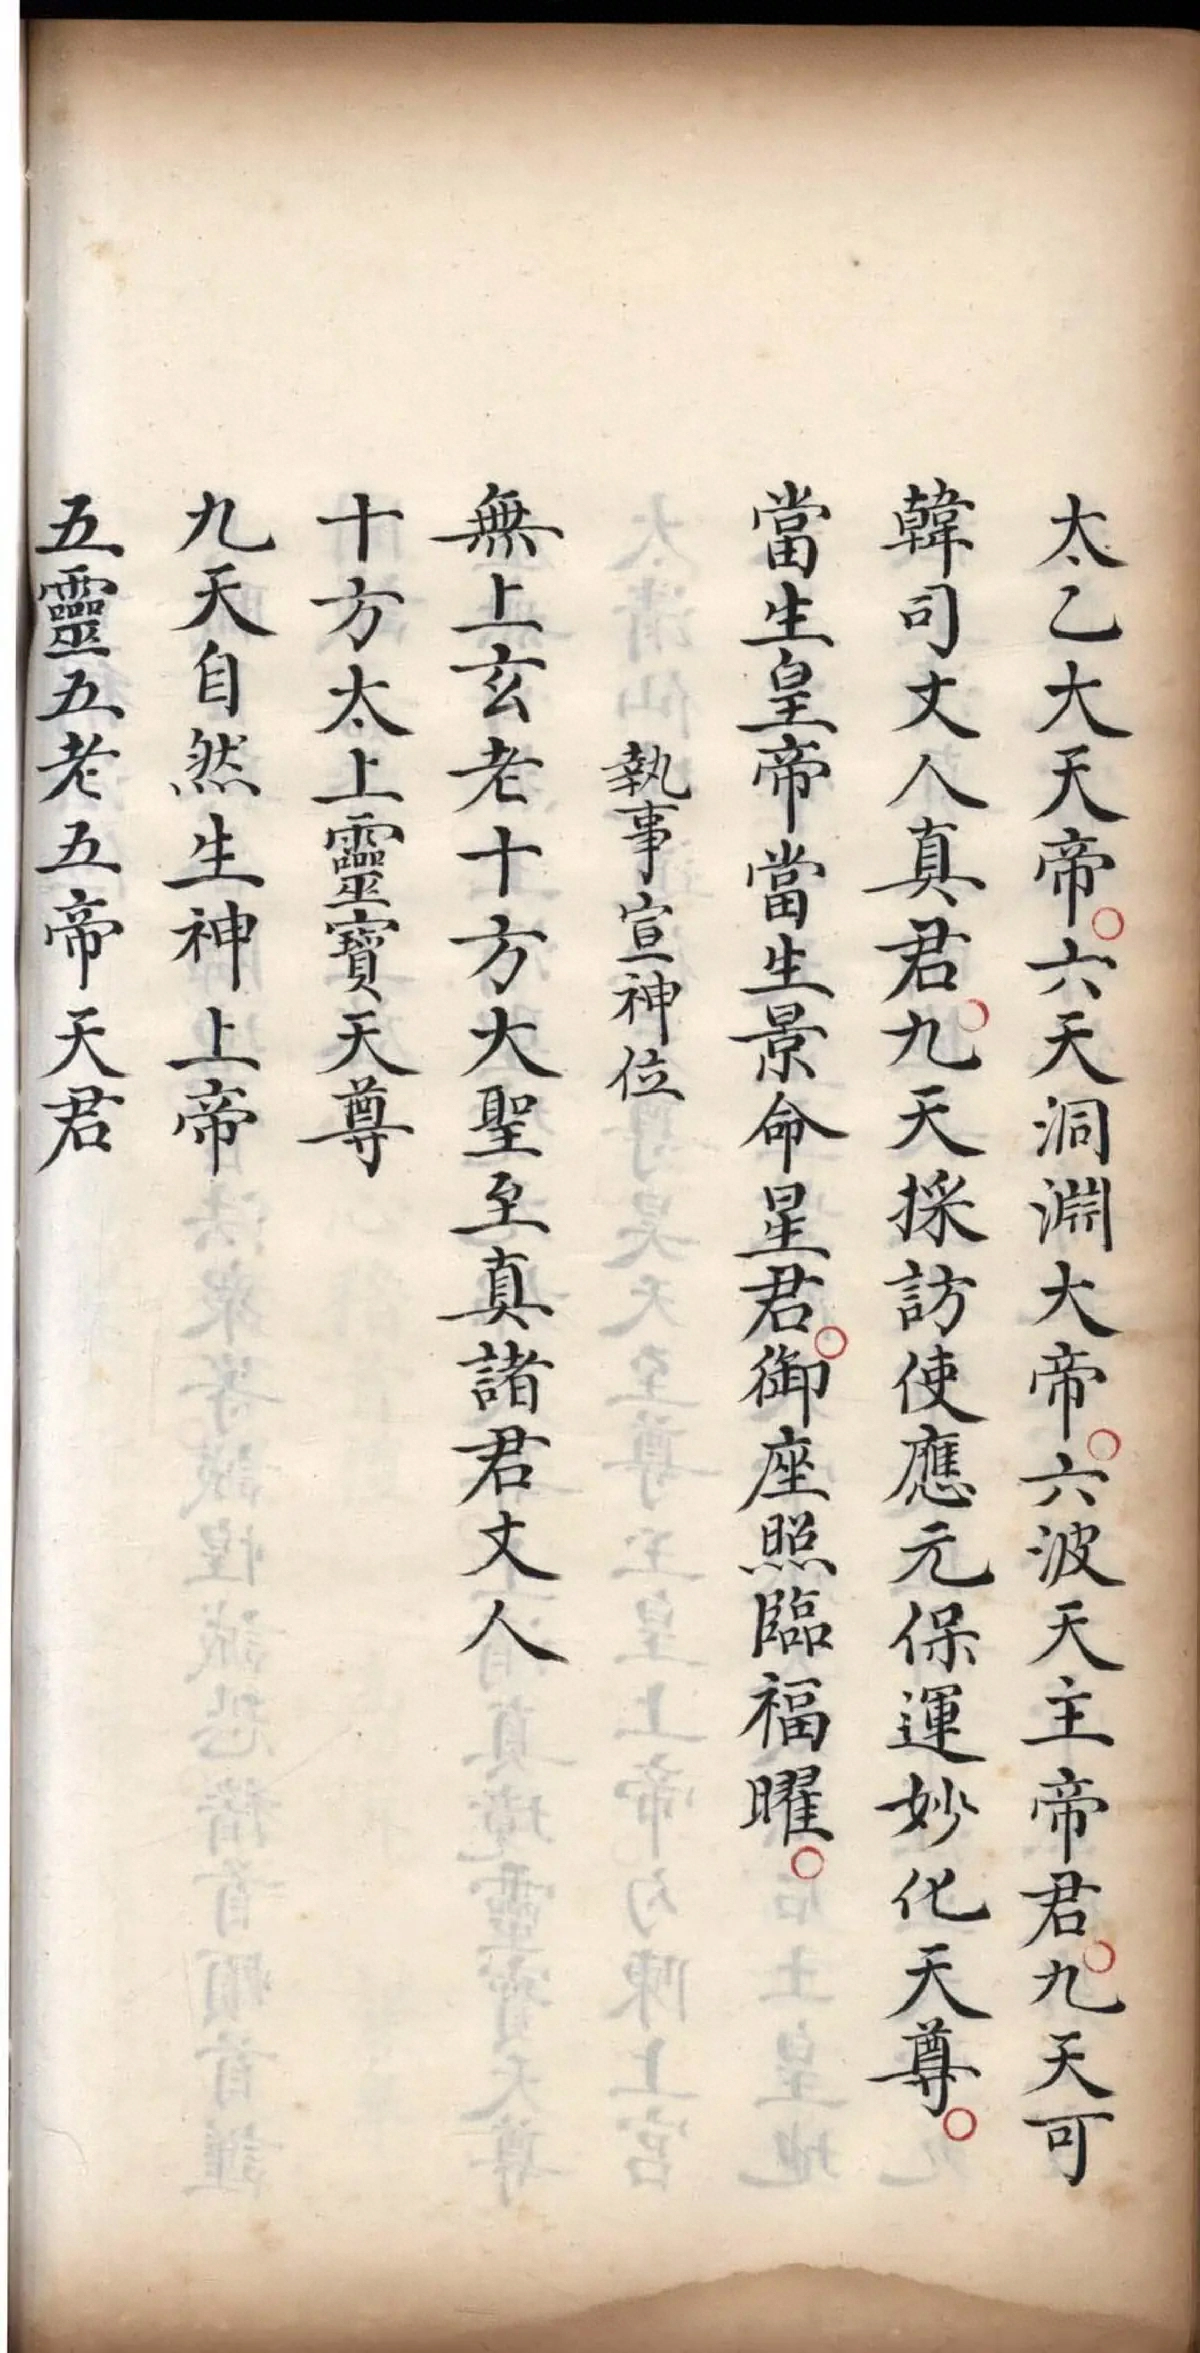 太乙大天帝○六天洞淵大帝○六波天主帝君○九天可
韓司丈人真君○九天採訪使應元保運妙化天尊○
當生皇帝當生景命星君○御座照臨福曜○
執事宣神位
無上玄老十方大聖至真諸君丈人
十方太上靈寶天尊
九天自然生神上帝
五靈五老五帝天君